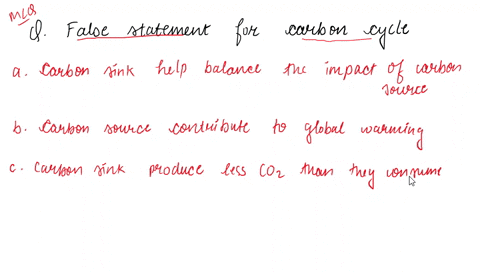 MCQ
Q. False statement for carbon cycle
a. Carbon sink help balance the impact of carbon
source
b. Carbon source contribute to global warming
c. Carbon sink produce less CO2 than they consume